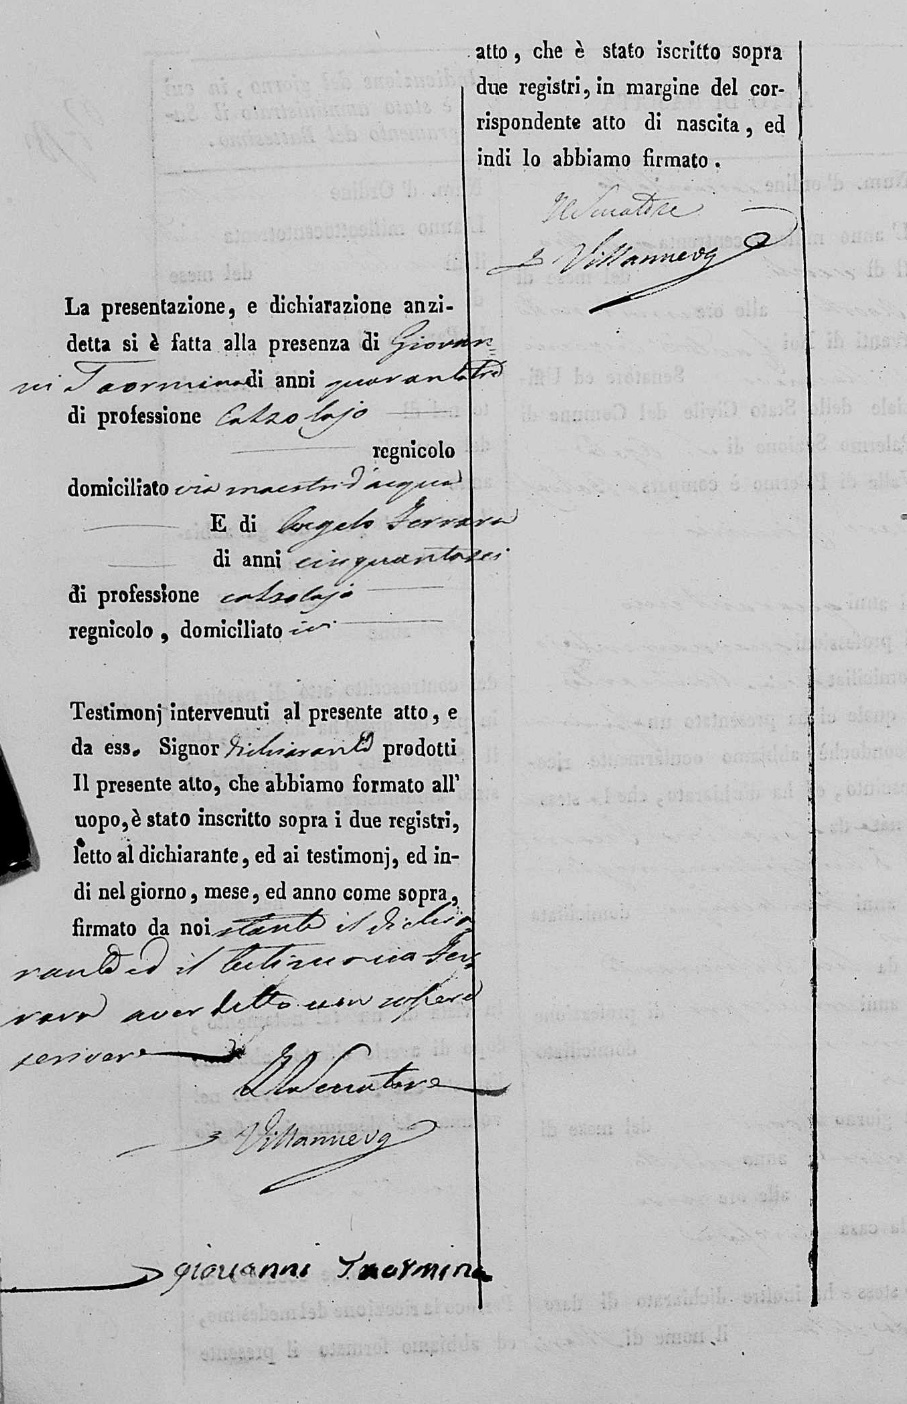 La presentazione, e dichiarazione anzi-
detta si è fatta alla presenza di Giovan
ni Taormina di anni quarantatre
di professione Calzolajo
regnicolo
domiciliato via maestri d'acqua
E di Angelo Ferrara
di anni cinquantasei
di professione calzolajo
regnicolo, domiciliato ivi
Testimonj intervenuti al presente atto, e
da ess. Signor dichiarante prodotti
Il presente atto, che abbiamo formato all'
uopo, è stato inscritto sopra i due registri,
letto al dichiarante, ed ai testimonj, ed in-
di nel giorno, mese, ed anno come sopra,
firmato da noi stante il dichia
rante ed il testimonio Fer
rara aver detto non sapere
scrivere
Il Senatore
Villannevg
giovanni Taormina
atto, che è stato iscritto sopra
due registri, in margine del cor-
rispondente atto di nascita, ed
indi lo abbiamo firmato.
Il Senatore
Villannevg